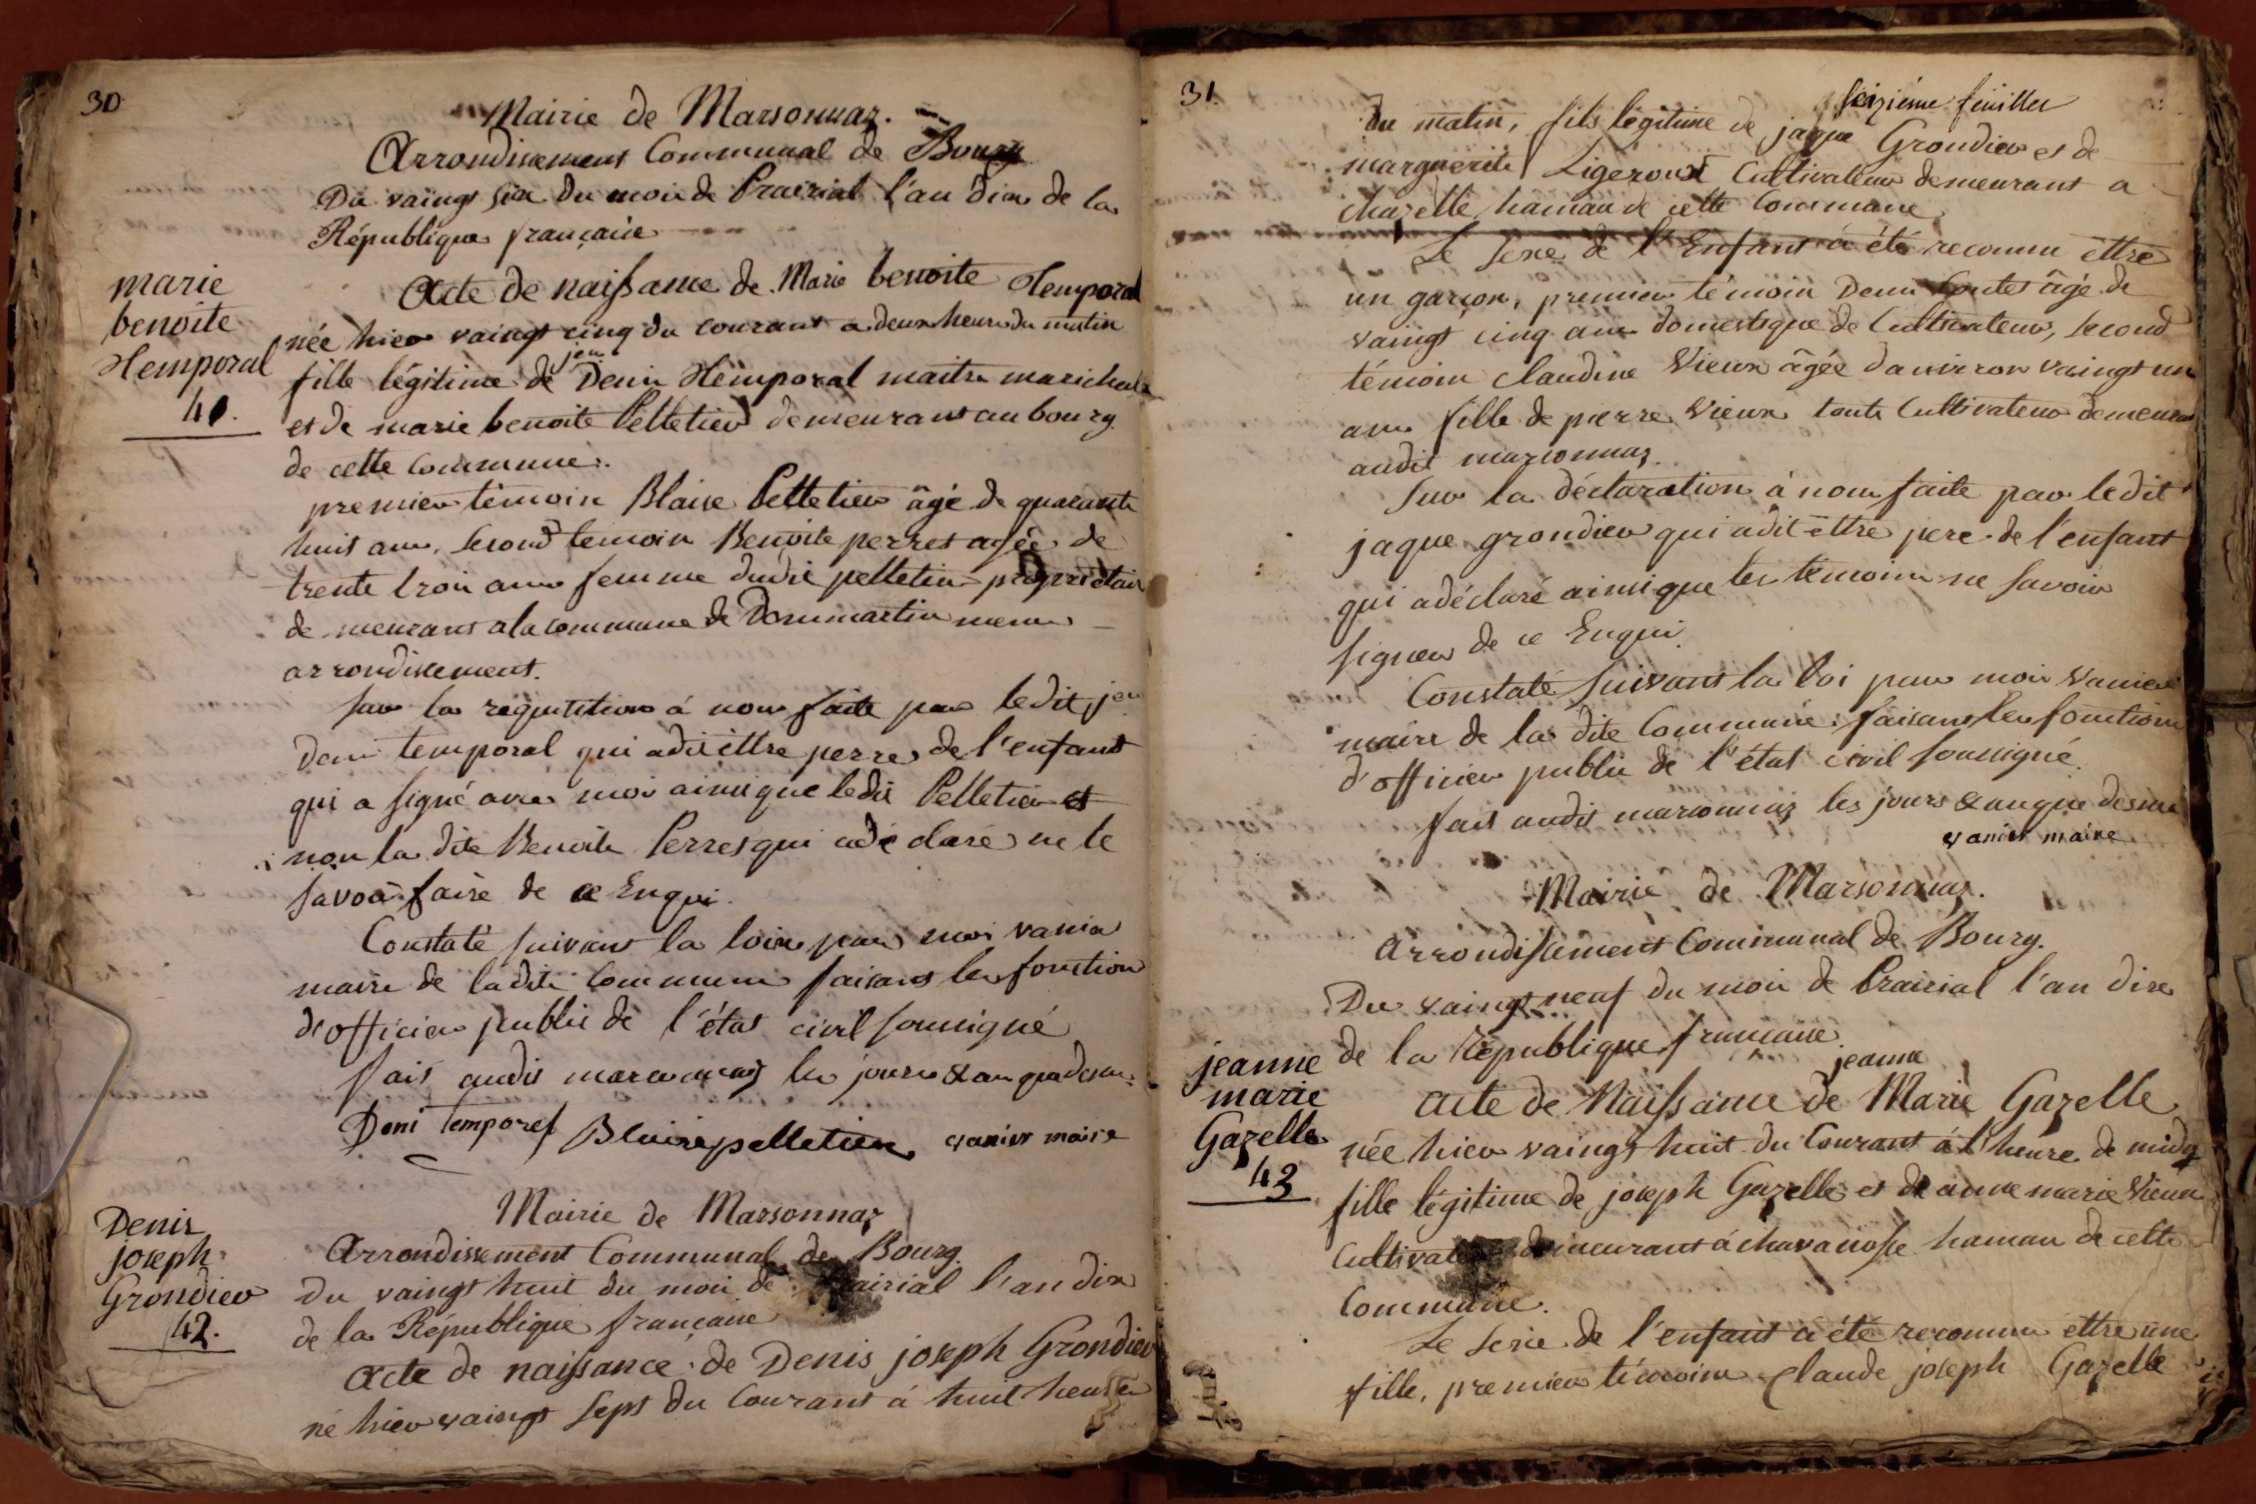 30
Mairie de Marsonnaz.
Arrondissement Communal de Bourg
Du vaingt six du mois de Prairial l'an dix de la
République française
marie
benoite
Temporal
41.
Acte de naissance de Marie benoite Temporal
née hier vaingt cinq du courant a deux heure du matin
fille légitime de jen Denis Temporal maitre marichal
et de marie benoite Pelletier demeurant au bourg
de cette commune.
premier témoin Blaise Pelletier âgé de quarante
huit ans, second temoin Benoite perret agée de
trente trois ans femme dudit pelletier propriétair
demeurant a la commune de Dommartin meme
arrondissement.
Sur la réquisition à nous faite par ledit jen
Deni temporal qui a dit ettre perre de l'enfant
qui a signé avec moi ainsi que ledit Pelletier et
non la dite Benoite Perret qui a déclaré ne le
savoir faire de ce Enqui.
Constaté suivant la loix par moi vanier
maire de la dite Commune faisant les fonction
d'officier public de l'état civil soussigné
fait audit marsonnaz les jours & an que dessus.
Deni temporel Blaise pelletier vanier maire
Mairie de Marsonnaz
Arrondissement Communal de Bourg.
Denis
joseph
Grondier
42.
Du vaingt huit du mois de Prairial l'an dix
de la République française
Acte de naissance de Denis joseph Grondier
né hier vaingt sept du Courant à huit heures
31.
seizième feuillet
du matin, fils légitime de jaque Grondier et de
marguerite Ligerout Cultivateur demeurant a
chazelle hamau de cette commune
Le sexe de l'Enfant a été reconnu ettre
un garçon, premier témoin Deni âgé de
vaingt cinq ans domestique de Cultivateur, second
témoin claudine Vieux âgée d'anviron vaingt un
ans fille de pierre Vieux toute Cultivateur demeurant
audit marsonnaz.
Sur la déclaration à nous faite par ledit
jaque grondier qui a dit ettre pere de l'enfant
qui a déclaré ainsi que les temoins ne savoir
signer de ce Enqui.
Constaté suivant la loi par moi Vanier
maire de la dite Commune faisant les fonctions
d'officier public de l'état civil soussigné.
fait audit marsonnaz les jours & an que dessus
vanier maire
Mairie de Marsonnaz.
arrondissement Communal de Bourg.
Du vaingt neuf du mois de Prairial l'an dixe
de la République française.
jeanne
marie
Gazelle
43
jeanne
acte de Naissance de Marie Gazelle
née hier vaingt huit du Courant à l'heure de midy
fille légitime de joseph Gazelle et de anne marie Vieux
Cultivateur demeurant à chavanosse hamau de cette
Commune.
Le sexe de l'enfant a été reconnu ettre une
fille, premier témoin Claude joseph Gazelle